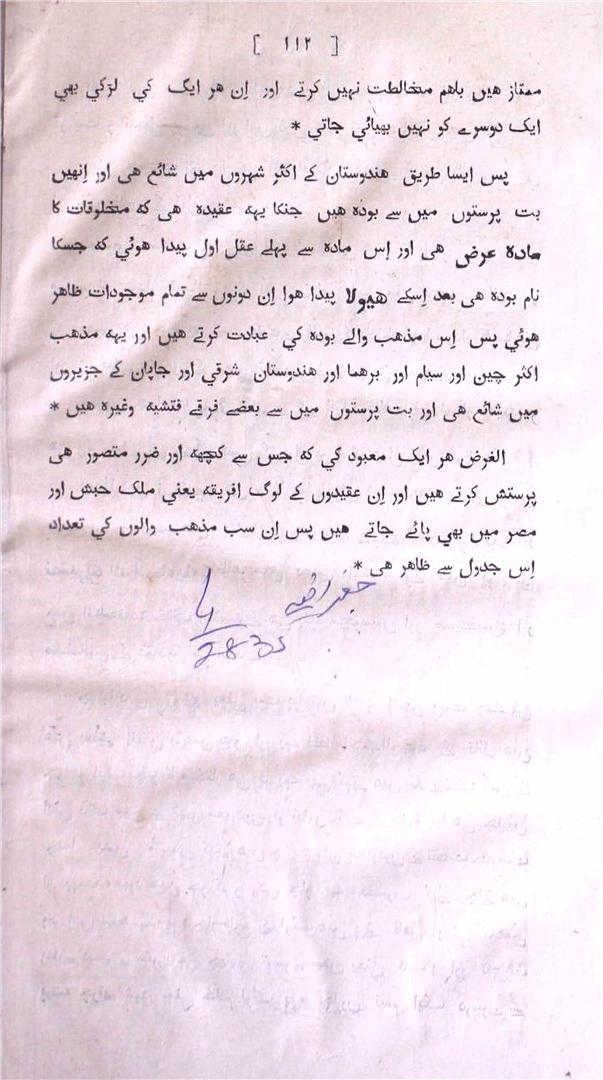 [ ١١٢ ]
ممتاز هیں باهم مخالطت نہیں کرتے اور اِن هر ایگ کي لڑکي بھي
ایک دوسرے کو نہیں بھیائي جاتي *
پس ایسا طریق هندوستان کے اکثر شہروں میں شائع هی اور اِنھیں
بت پرستوں میں سے بوده هیں جنکا یہہ عقیده هی که مخلوقات کا
ماده عرض هی اور اِس ماده سے پہلے عقل اول پیدا هوئي که جسکا
نام بوده هی بعد اِسکے هیولا پیدا هوا اِن دونوں سے تمام موجودات ظاهر
هوئي پس اِس مذهب والے بوده کي عبادت کرتے هیں اور یہہ مذهب
اکثر چین اور سیام اور برهما اور هندوستان شرقي اور جاپان کے جزیروں
میں شائع هی اور بت پرستوں میں سے بعضے فرقے فتشیه وغیره هیں *
الغرض هر ایک معبود کي که جس سے کچھه اور ضرر متصور هی
پرستش کرتے هیں اور اِن عقیدوں کے لوگ افریقه یعني ملک حبش اور
مصر میں بھي پائے جاتے هیں پس اِن سب مذهب والوں کي تعداد
اِس جدول سے ظاهر هی *